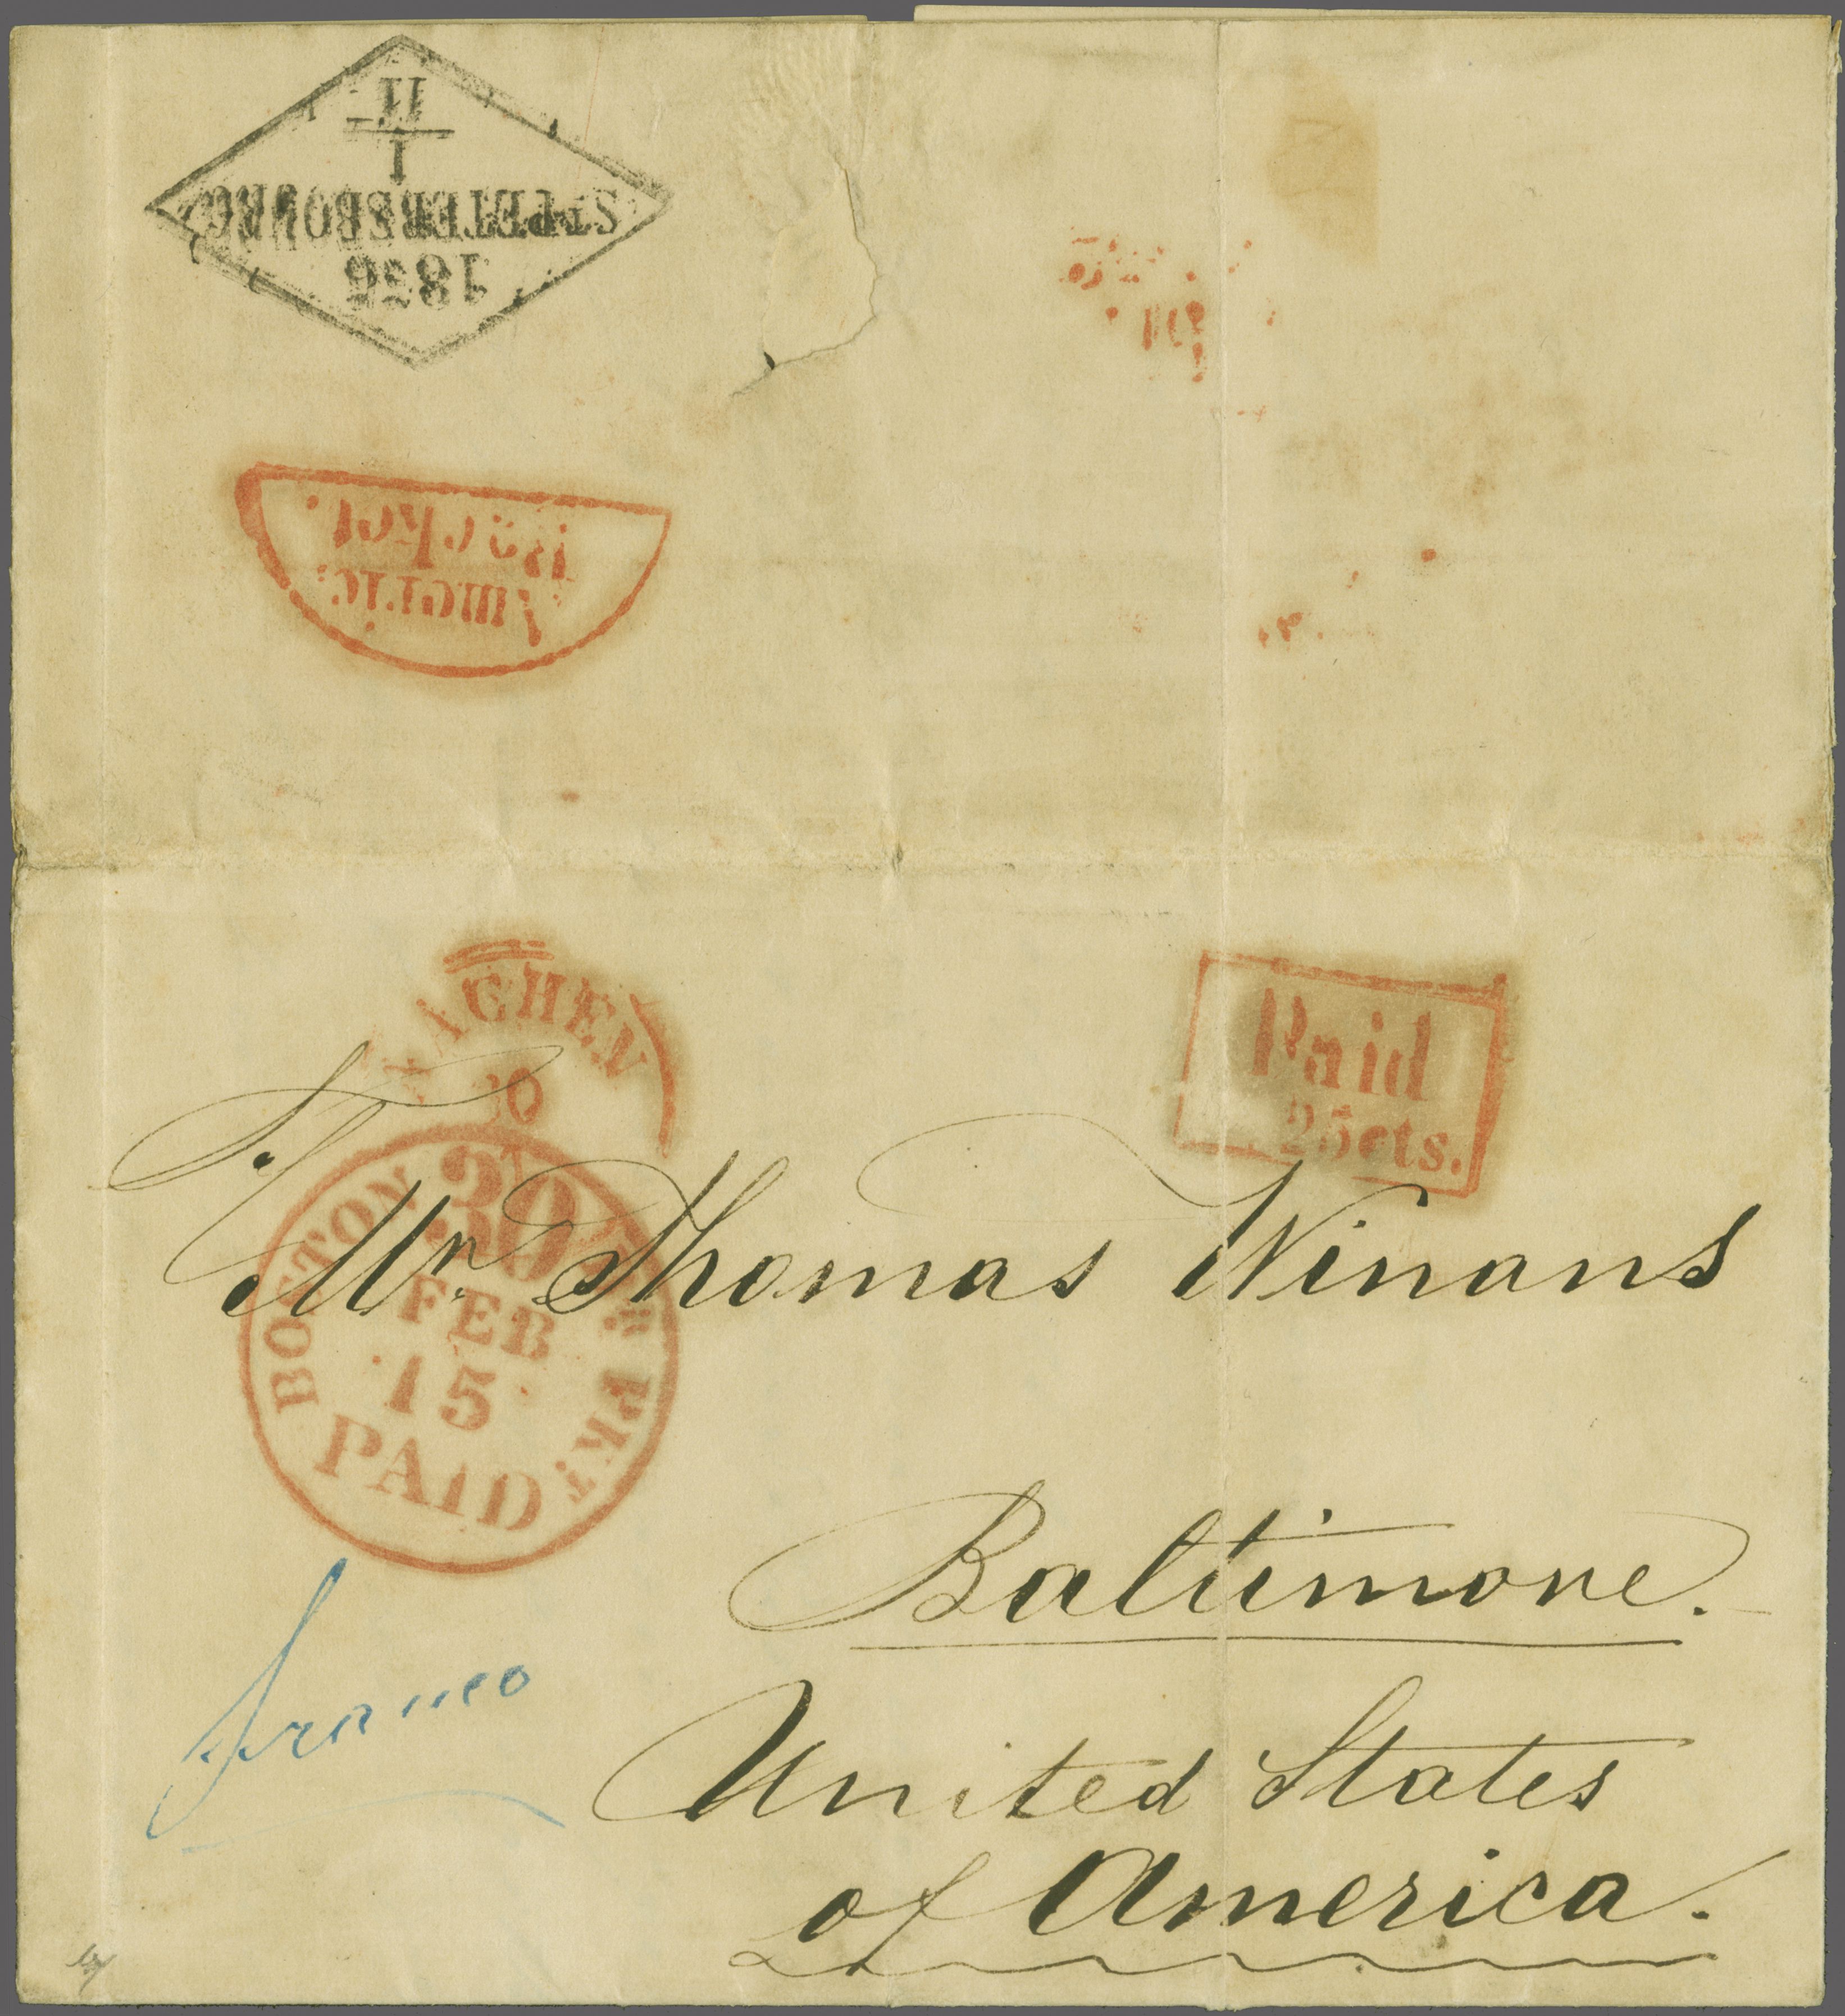 1856
ST PETERSBOURG
1
11
Packet
AACHEN
Paid
25 cts.
BOSTON BR. PKT.
30
FEB
15
PAID
Mr. Thomas Winans
Baltimore.
franco
United States
of America.